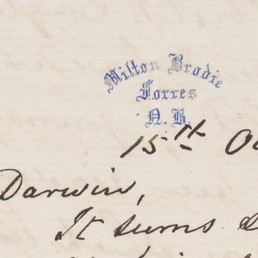 Milton Brodie
Forres
N.B.
15th Oc
Darwin,
It seems